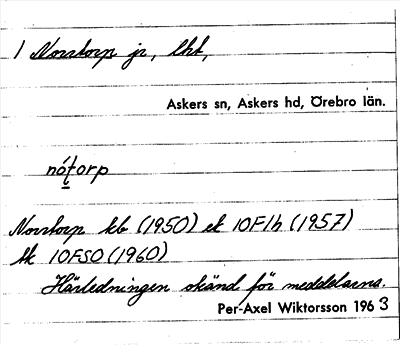 1 Norrtorp jr, lht,
Askers sn, Askers hd, Örebro län.
nó̱torp
Norrtorp kb (1950) ek 10F1h (1957)
tk 10FSO (1960)
Härledningen okänd för meddelarna.
Per-Axel Wiktorsson 1963